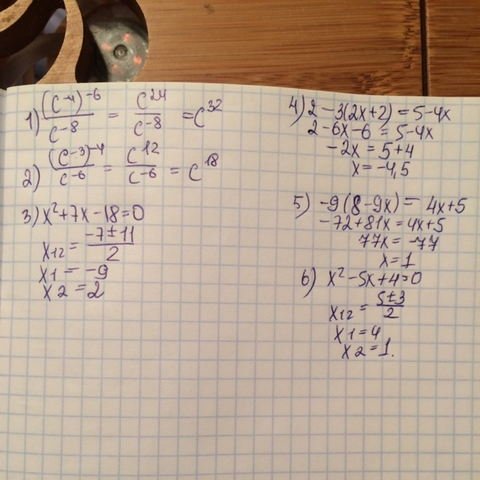 1) (c⁻⁴)⁻⁶/c⁻⁸ = c²⁴/c⁻⁸ = c³²
2) (c⁻³)⁻⁴/c⁻⁶ = c¹²/c⁻⁶ = c¹⁸
3) x²+7x-18=0
x₁₂ = -7±11/2
x1 = -9
x2 = 2
4) 2-3(2x+2) = 5-4x
2-6x-6 = 5-4x
-2x = 5+4
x = -4,5
5) -9(8-9x) = 4x+5
-72+81x = 4x+5
77x = -77
x=1
6) x²-5x+4=0
x₁₂ = 5±3/2
x1=4
x2=1.